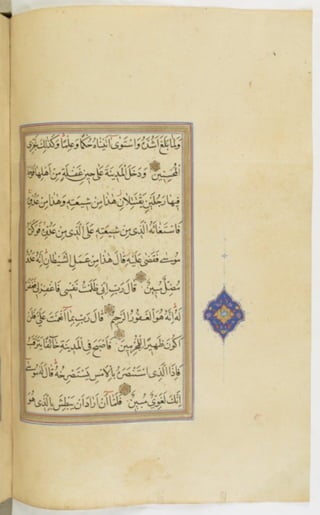 وَلَمَّا بَلَغَ أَشُدَّهُ وَاسْتَوَىٰ آتَيْنَاهُ حُكْمًا وَعِلْمًا وَكَذَٰلِكَ نَجْزِي
الْمُحْسِنِينَ وَدَخَلَ الْمَدِينَةَ عَلَىٰ حِينِ غَفْلَةٍ مِنْ أَهْلِهَا فَوَجَدَ
فِيهَا رَجُلَيْنِ يَقْتَتِلَانِ هَٰذَا مِنْ شِيعَتِهِ وَهَٰذَا مِنْ عَدُوِّهِ
فَاسْتَغَاثَهُ الَّذِي مِنْ شِيعَتِهِ عَلَى الَّذِي مِنْ عَدُوِّهِ فَوَكَزَهُ
مُوسَىٰ فَقَضَىٰ عَلَيْهِ قَالَ هَٰذَا مِنْ عَمَلِ الشَّيْطَانِ إِنَّهُ عَدُوٌّ
مُضِلٌّ مُبِينٌ قَالَ رَبِّ إِنِّي ظَلَمْتُ نَفْسِي فَاغْفِرْ لِي فَغَفَرَ
لَهُ إِنَّهُ هُوَ الْغَفُورُ الرَّحِيمُ قَالَ رَبِّ بِمَا أَنْعَمْتَ عَلَيَّ فَلَنْ
أَكُونَ ظَهِيرًا لِلْمُجْرِمِينَ فَأَصْبَحَ فِي الْمَدِينَةِ خَائِفًا يَتَرَقَّبُ
فَإِذَا الَّذِي اسْتَنْصَرَهُ بِالْأَمْسِ يَسْتَصْرِخُهُ قَالَ لَهُ مُوسَىٰ
إِنَّكَ لَغَوِيٌّ مُبِينٌ فَلَمَّا أَنْ أَرَادَ أَنْ يَبْطِشَ بِالَّذِي هُوَ